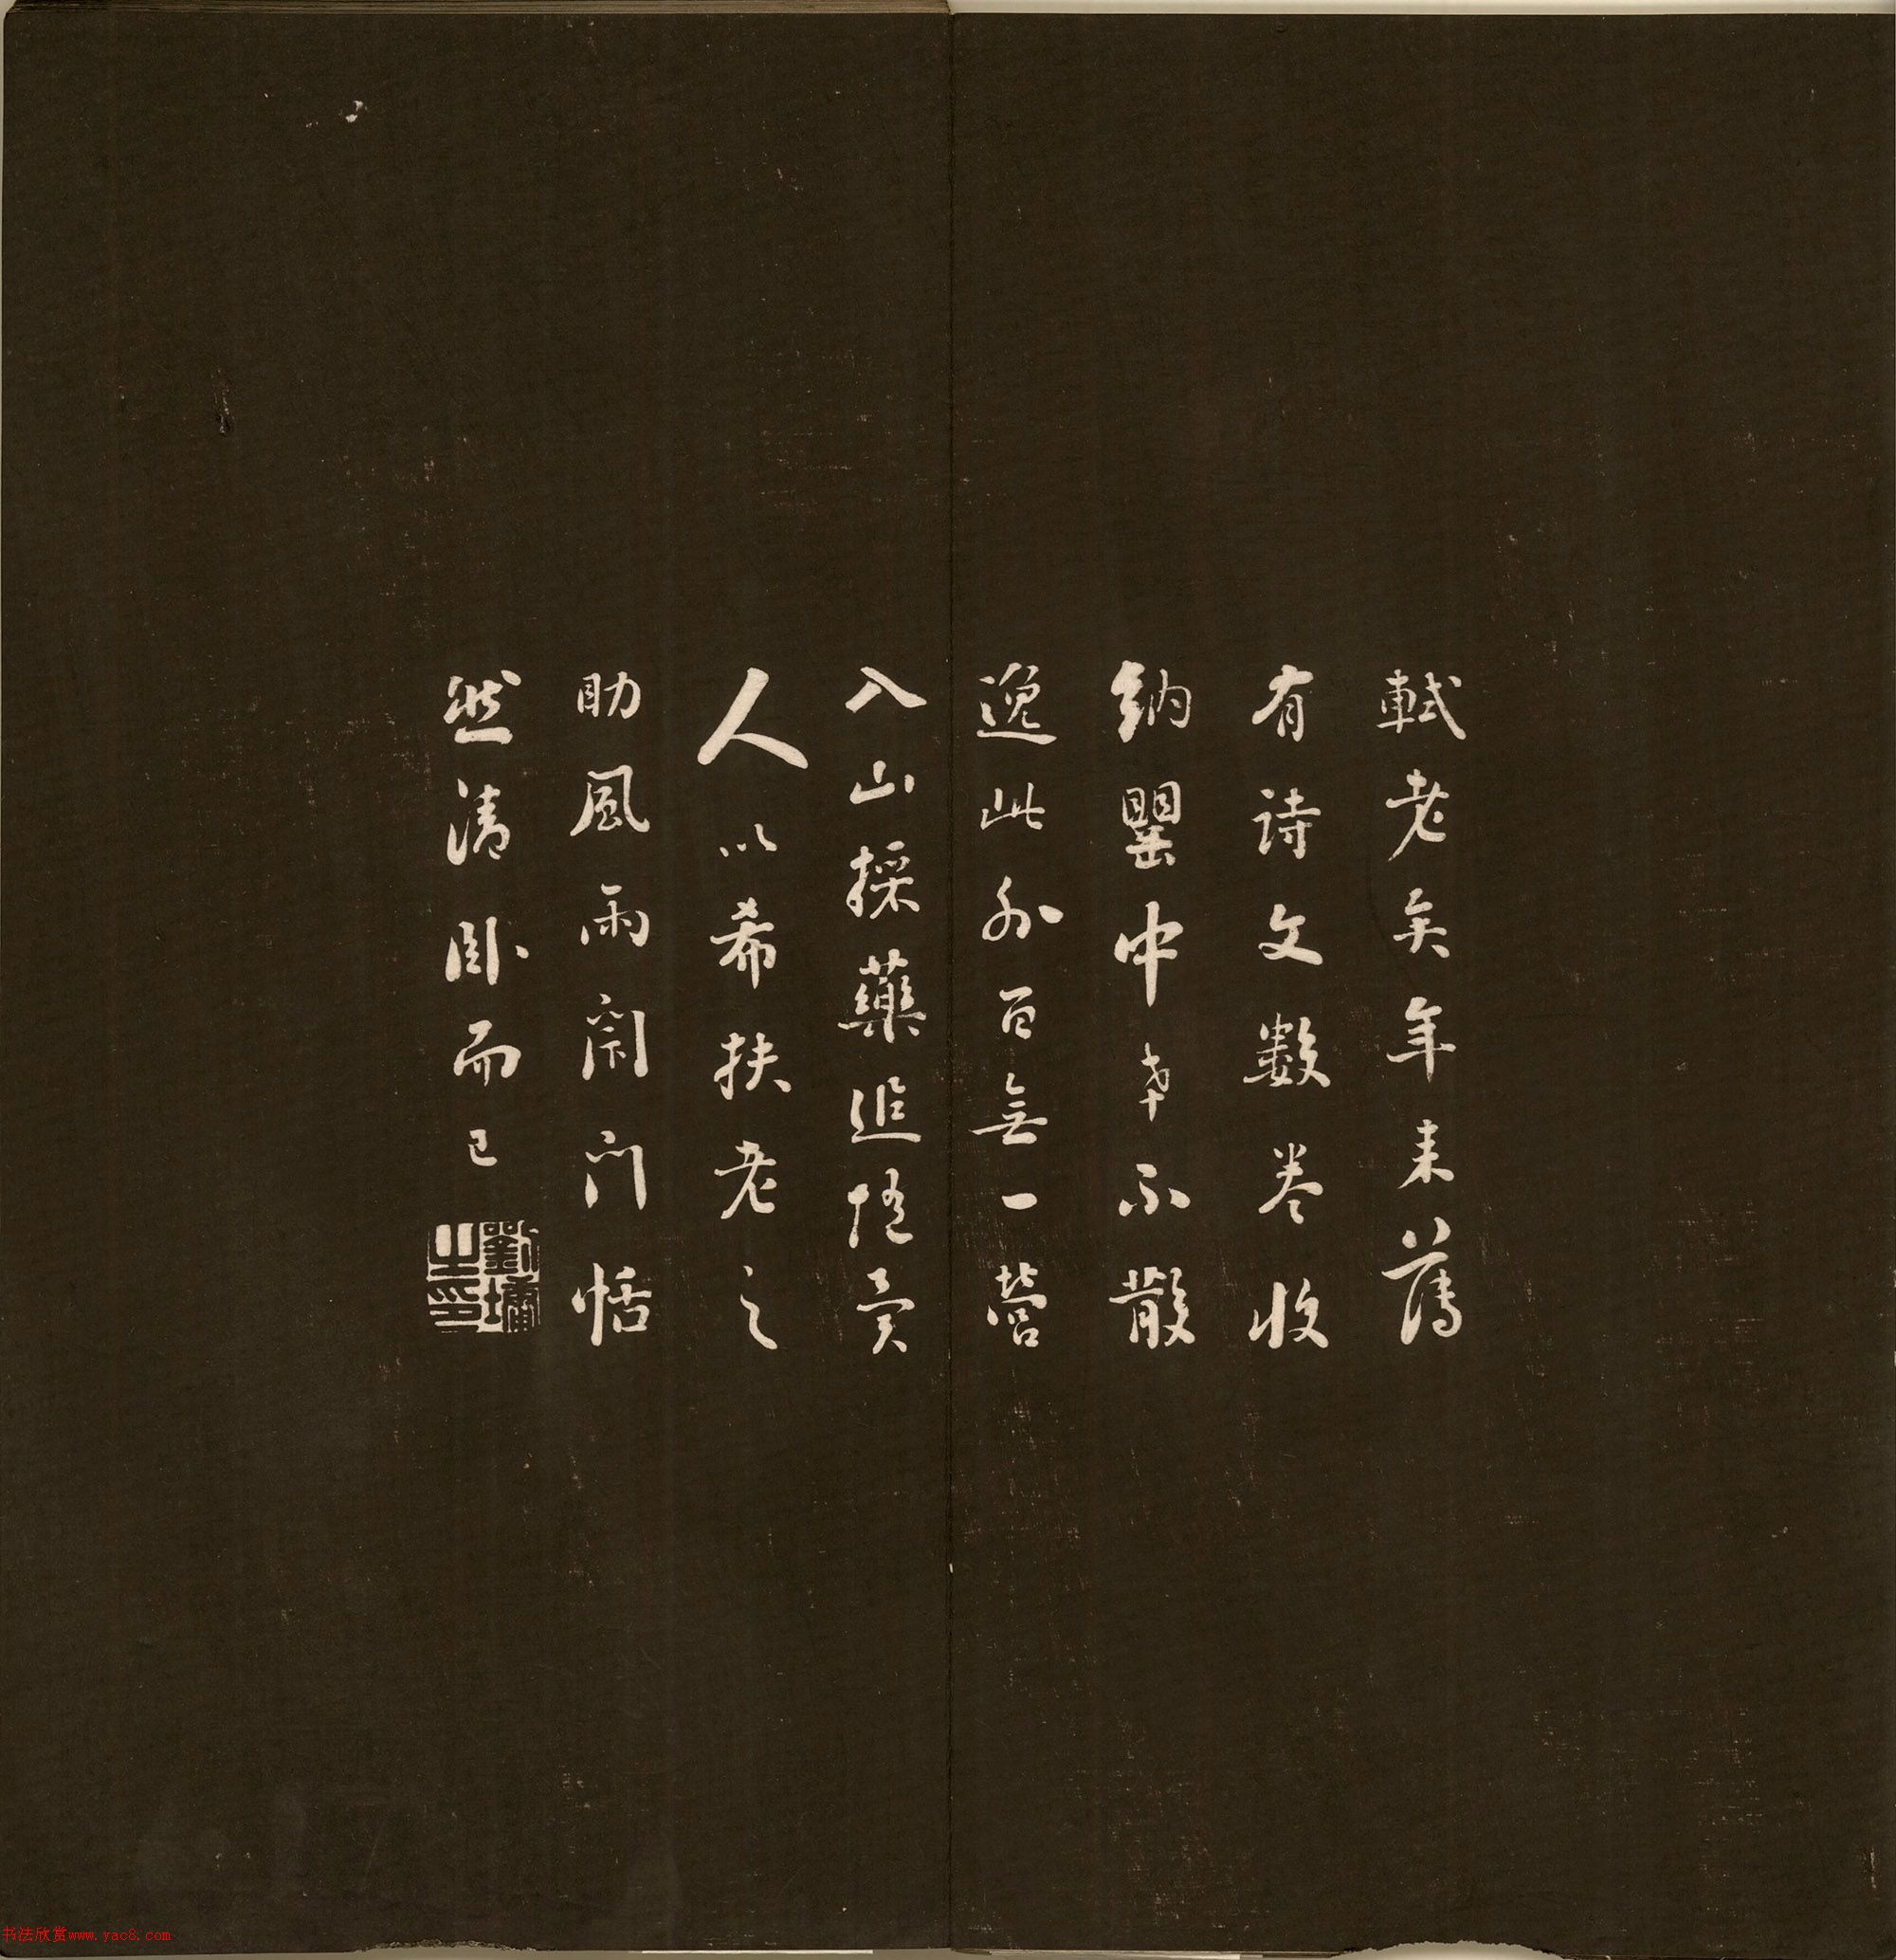 軾老矣年来薄
有诗文数卷收
納罌中幸不散
逸此外百無一營
入山採藥追悟
人以希扶老之
助風雨閉门恬
然清卧而已
劉墉之印
书法欣赏www.yac8.com